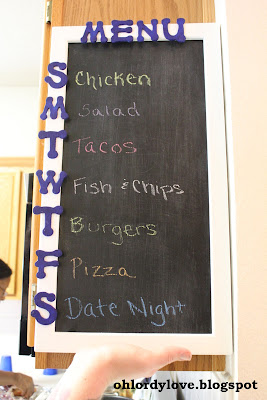 MENU
S Chicken
M Salad
T Tacos
W Fish & Chips
T Burgers
F Pizza
S Date Night
ohlordylove.blogspot